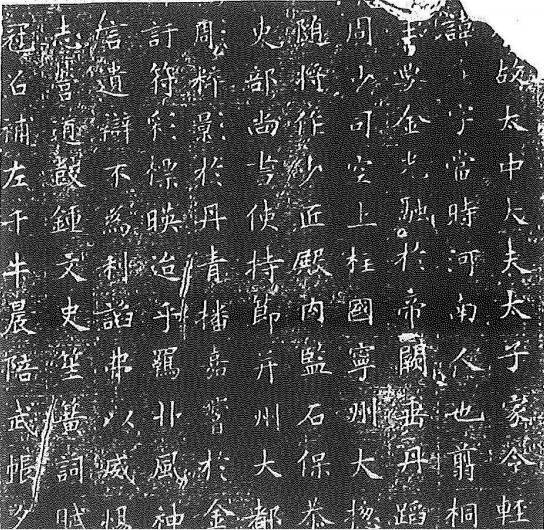 故太中大夫太子家令輕
諱字當時河南人也翦桐
金光融於帝闕垂丹蹈
周少司空上柱國寧州大揔
隨將作少匠殿內監石保恭
史部尚書使持節并州大都
粹影於丹青播嘉譽於金
訏符彩慓映迨乎羈丱風神
信遺辯不為利諂弗以威惕
志嘗通鼓鍾文史笙簧詞賦
冠召補左千牛晨陪武帳夕